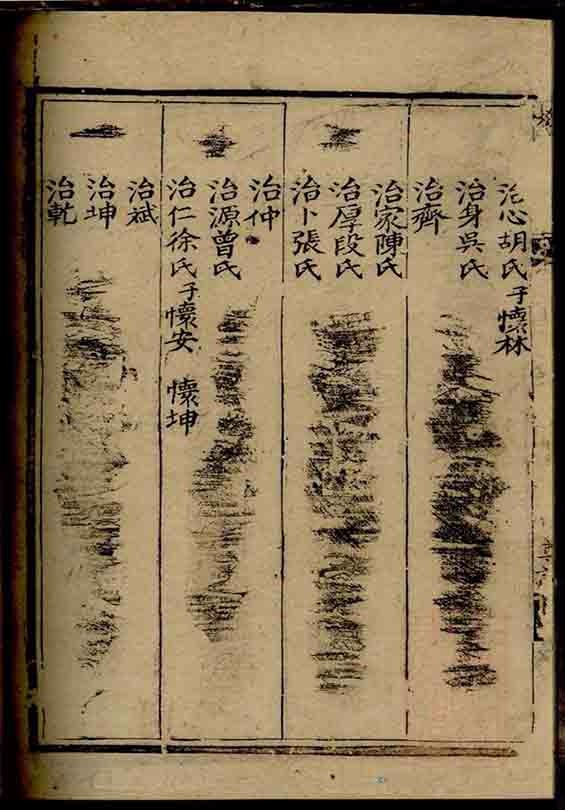 治心胡氏子懷林
治身吳氏
治齊
治家陳氏
治厚段氏
治卜張氏
治仲
治源曾氏
治仁徐氏子懷安 懷坤
治斌
治坤
治乾